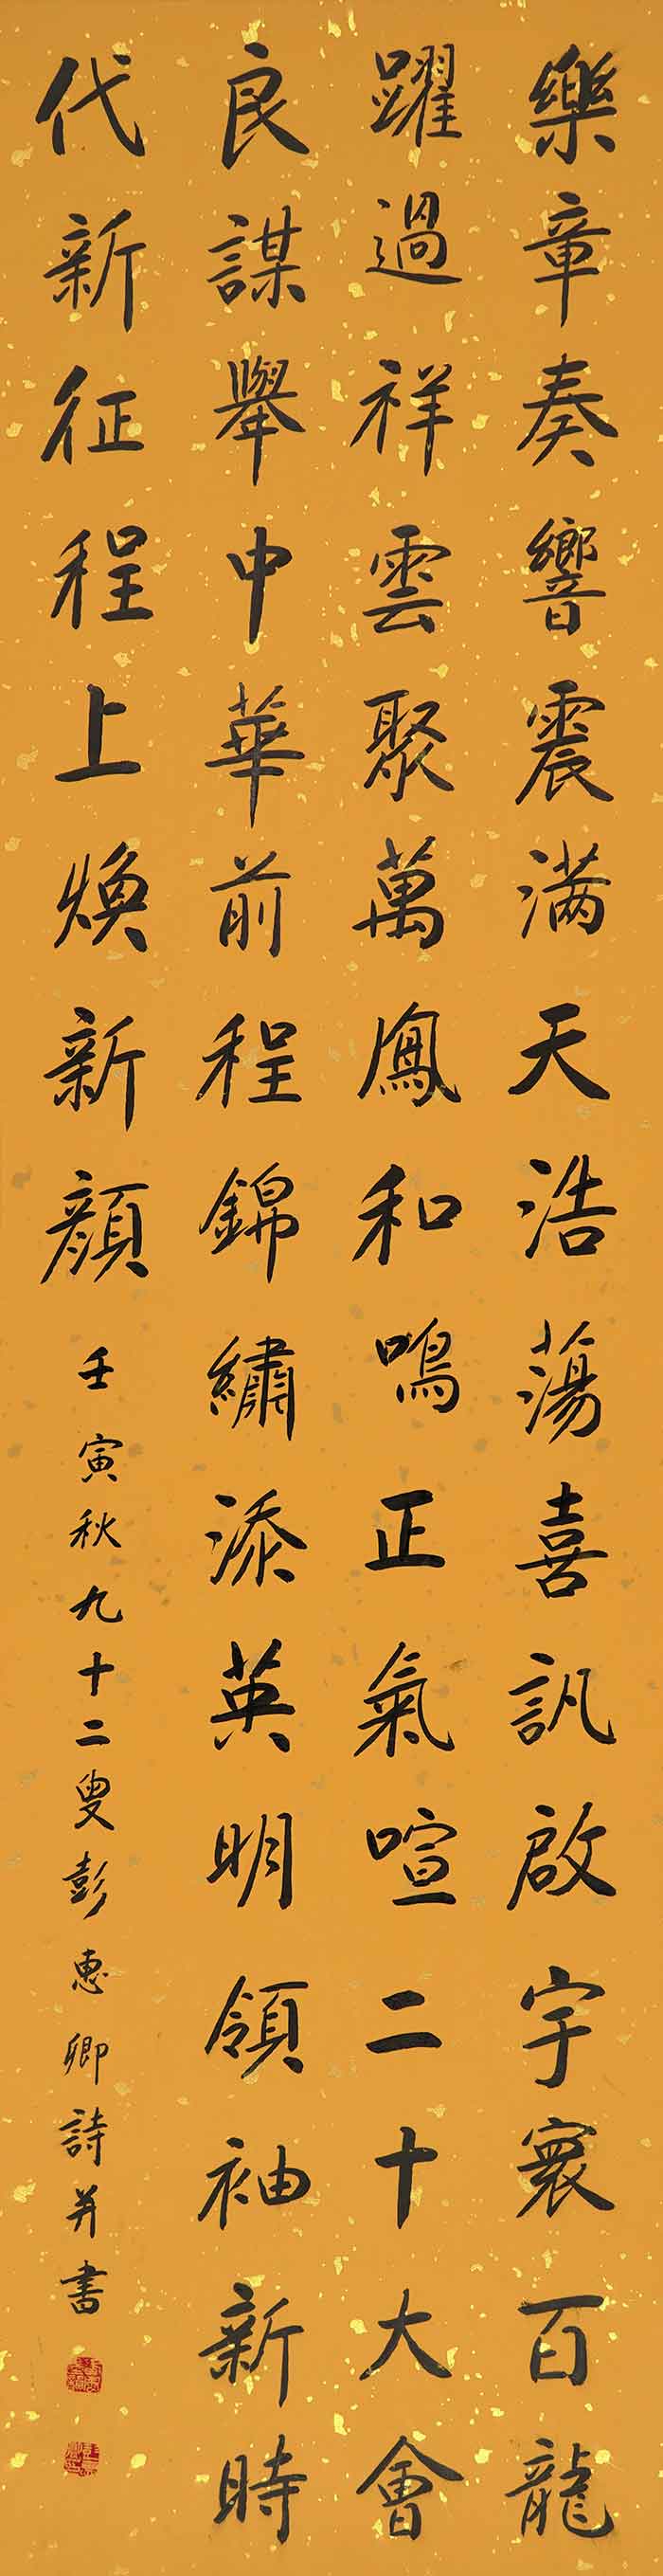 樂章奏響震满天浩蕩喜訊啟宇寰百龍
躍過祥雲聚萬鳳和鳴正氣喧二十大會
良謀舉中華前程錦繡添英明領袖新時
代新征程上焕新顔
壬寅秋九十二叟彭惠卿詩并書